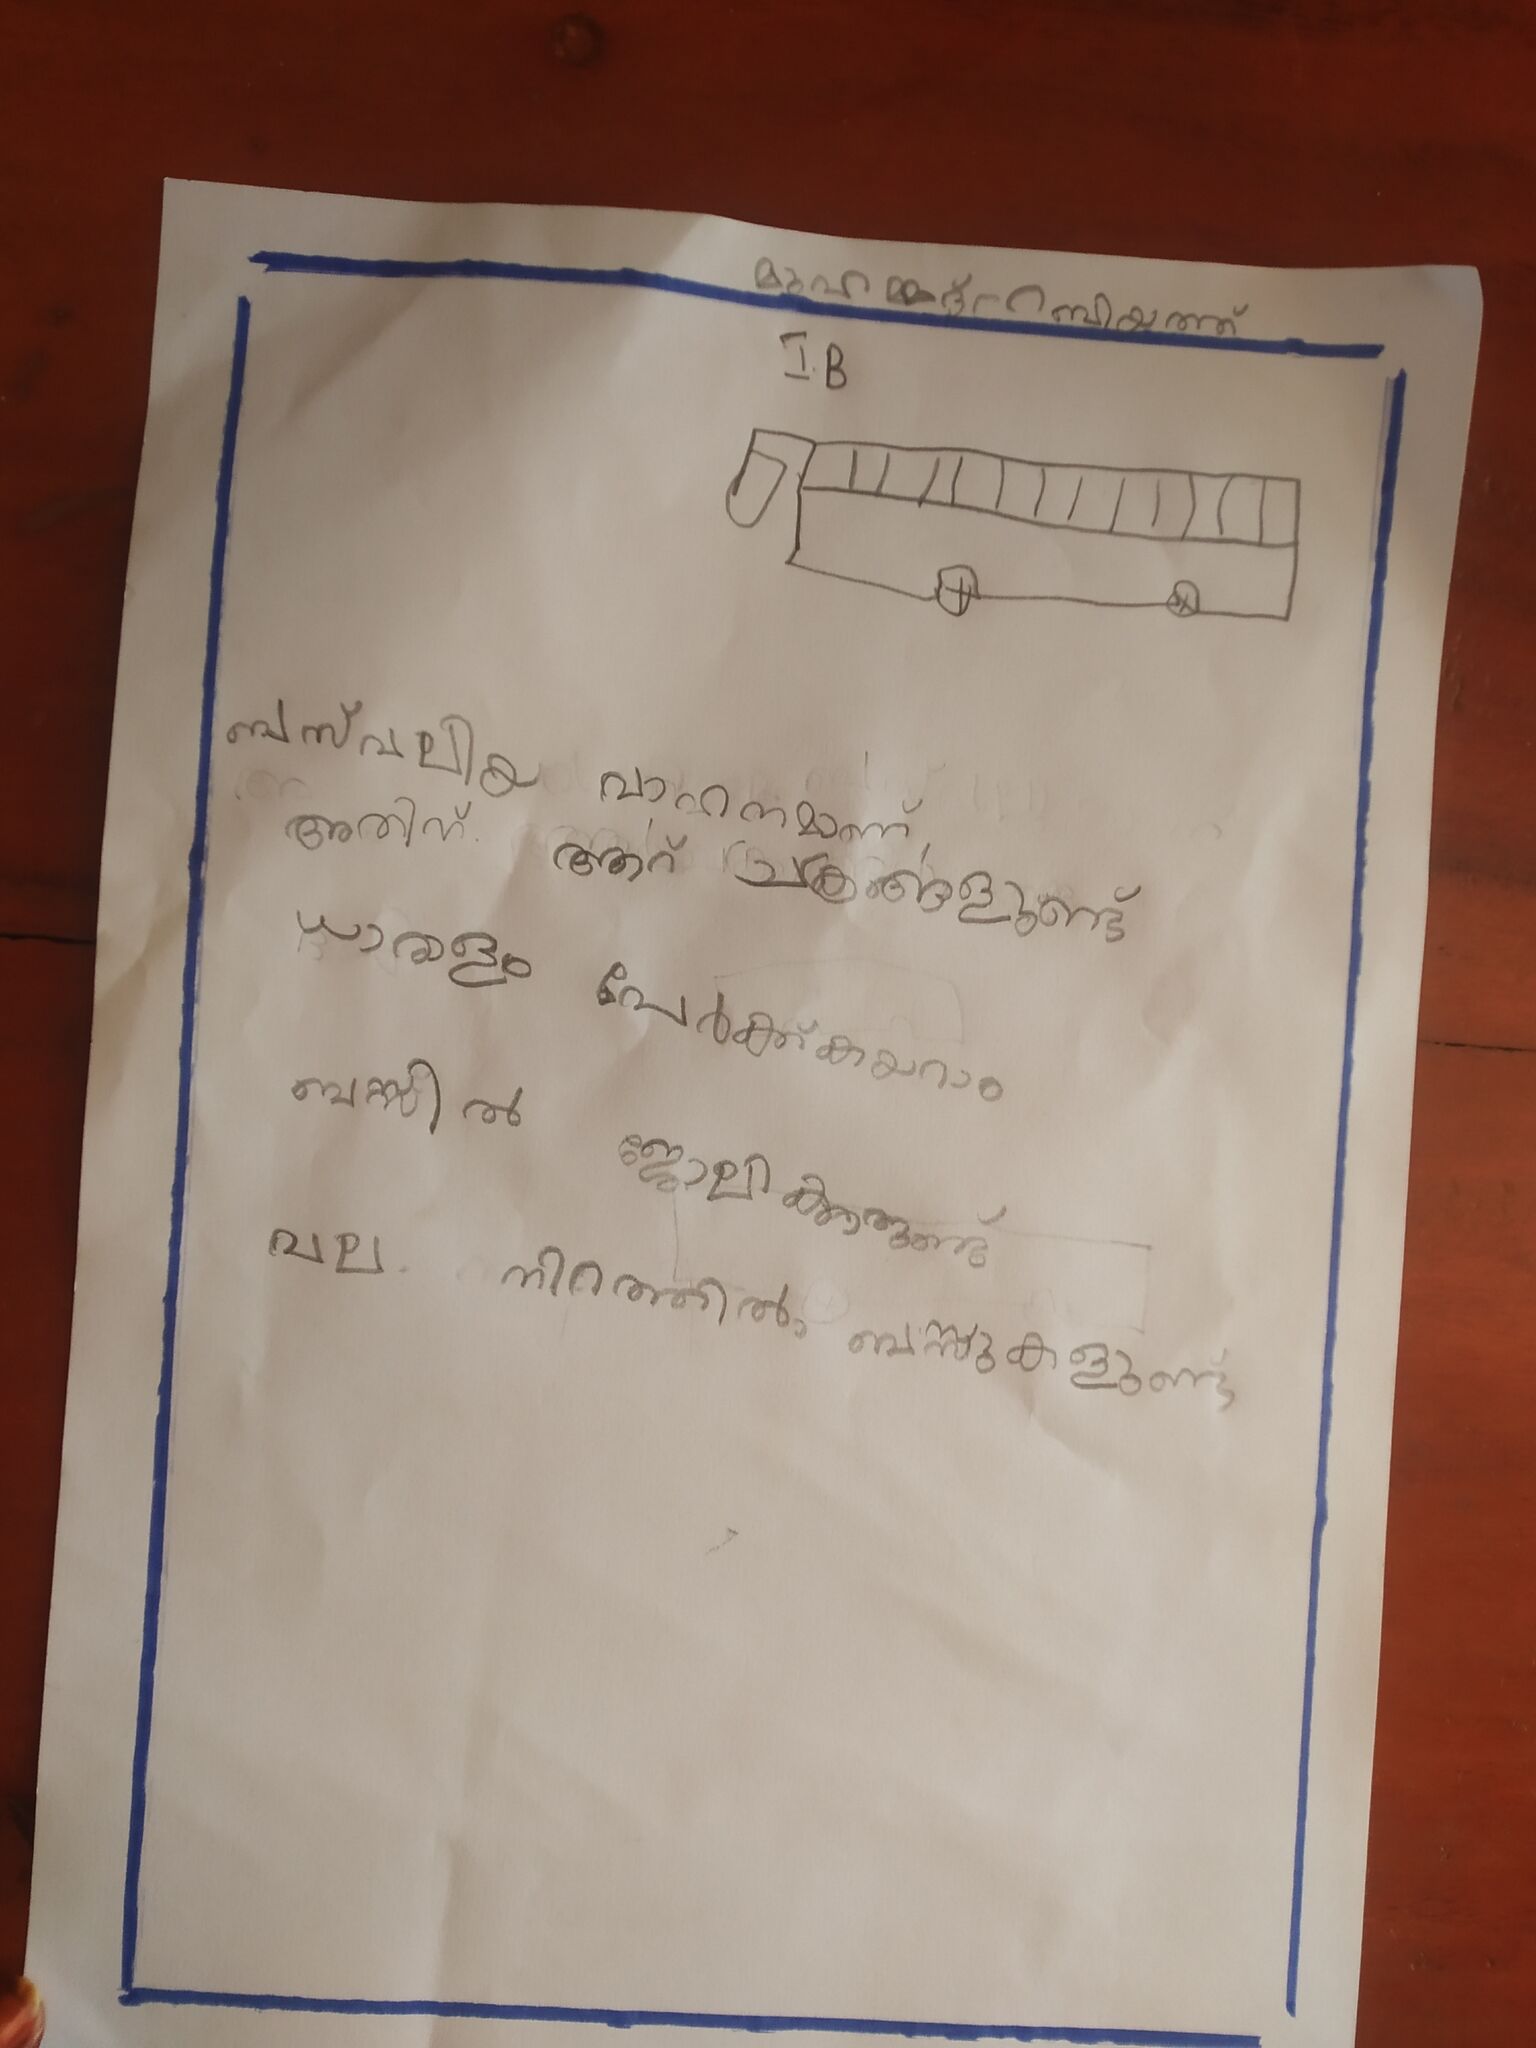 മുഹമ്മദ് റബിയത്ത്
I.B
ബസ് വലിയ വാഹനമാണ്,
അതിന്. ആറ് ചക്രങ്ങളുണ്ട്
ധാരളം പേർക്ക് കയറാം
ബസ്സിൽ ജോലിക്കാരുണ്ട്
വല നിറത്തിൽ ബസ്സുകളുണ്ട്